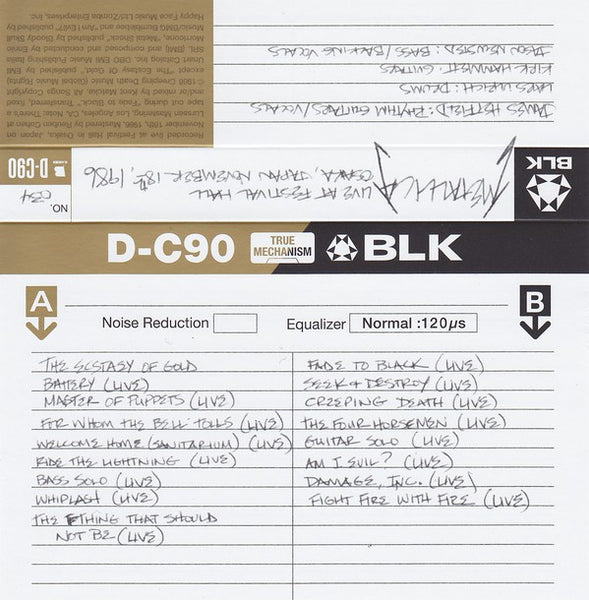 Recorded live at Festival Hall in Osaka, Japan on
November 18th, 1986. Mastered by Reuben Cohen at
Lurssen Mastering, Los Angeles, CA. Note: There's a
tape cut during "Fade to Black." Transferred, fixed
mixed by Kent Matcke. All Songs Copyright
1986 © Creeping Death Music (Global Music Rights)
except "The Ecstasy Of Gold," published by EMI
Unart Catalog Inc. OBO EMI Music Publishing Italia
SRL (BMI) and composed and conducted by Ennio
Morricone, "Metal Shock" published by Bloody Skull
Music/BMG Music Bumblebee and "Am I Evil?" published by
Happy Face Music Ltd/Zomba Enterprises, Inc.
JAMES HETFIELD: RHYTHM GUITARS/VOCALS
LARS ULRICH: DRUMS
KIRK HAMMETT: GUITARS
JASON NEWSTED: BASS/BACKING VOCALS
BLK
METALLICA
LIVE AT FESTIVAL HALL
OSAKA, JAPAN NOVEMBER 18th, 1986
NO. 034
D-C90
D-C90 TRUE MECHANISM BLK
A B
Noise Reduction Equalizer Normal :120µs
THE ECSTASY OF GOLD
BATTERY (LIVE)
MASTER OF PUPPETS (LIVE)
FOR WHOM THE BELL TOLLS (LIVE)
WELCOME HOME (SANITARIUM) (LIVE)
RIDE THE LIGHTNING (LIVE)
BASS SOLO (LIVE)
WHIPLASH (LIVE)
THE THING THAT SHOULD
NOT BE (LIVE)
FADE TO BLACK (LIVE)
SEEK & DESTROY (LIVE)
CREEPING DEATH (LIVE)
THE FOUR HORSEMEN (LIVE)
GUITAR SOLO (LIVE)
AM I EVIL? (LIVE)
DAMAGE, INC. (LIVE)
FIGHT FIRE WITH FIRE (LIVE)